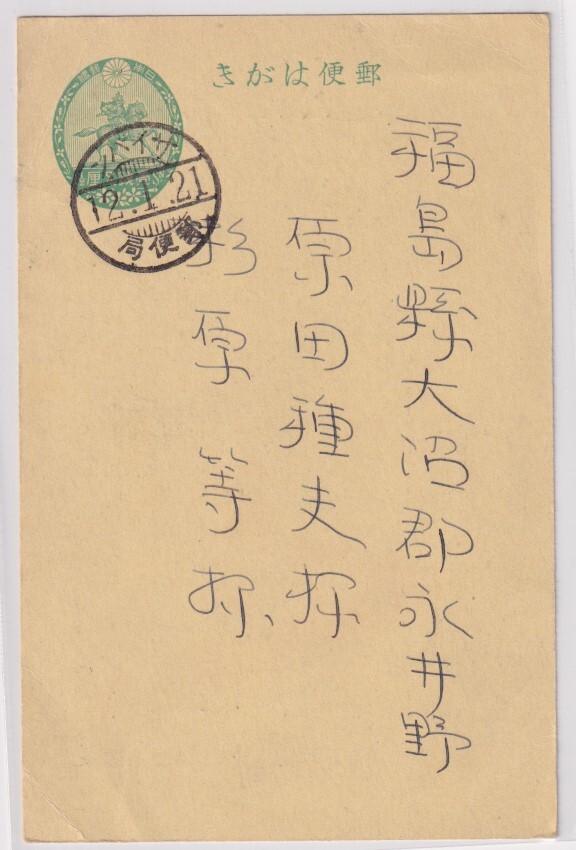 郵便はがき
福島縣大沼郡永井野
原田種夫様
杉原等様
サイパン
12.1.21
郵便局